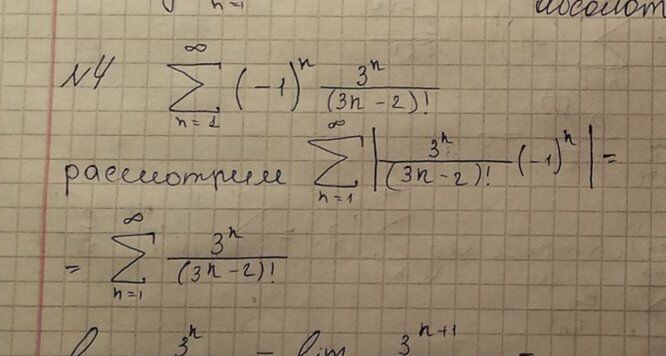 n=1 абсолют
№4 ∞ ∑ n=1 (-1)^n 3^n/(3n-2)!
рассмотрим ∞ ∑ n=1 |3^n/(3n-2)! (-1)^n| =
= ∞ ∑ n=1 3^n/(3n-2)!
3^n = lim 3^(n+1) =